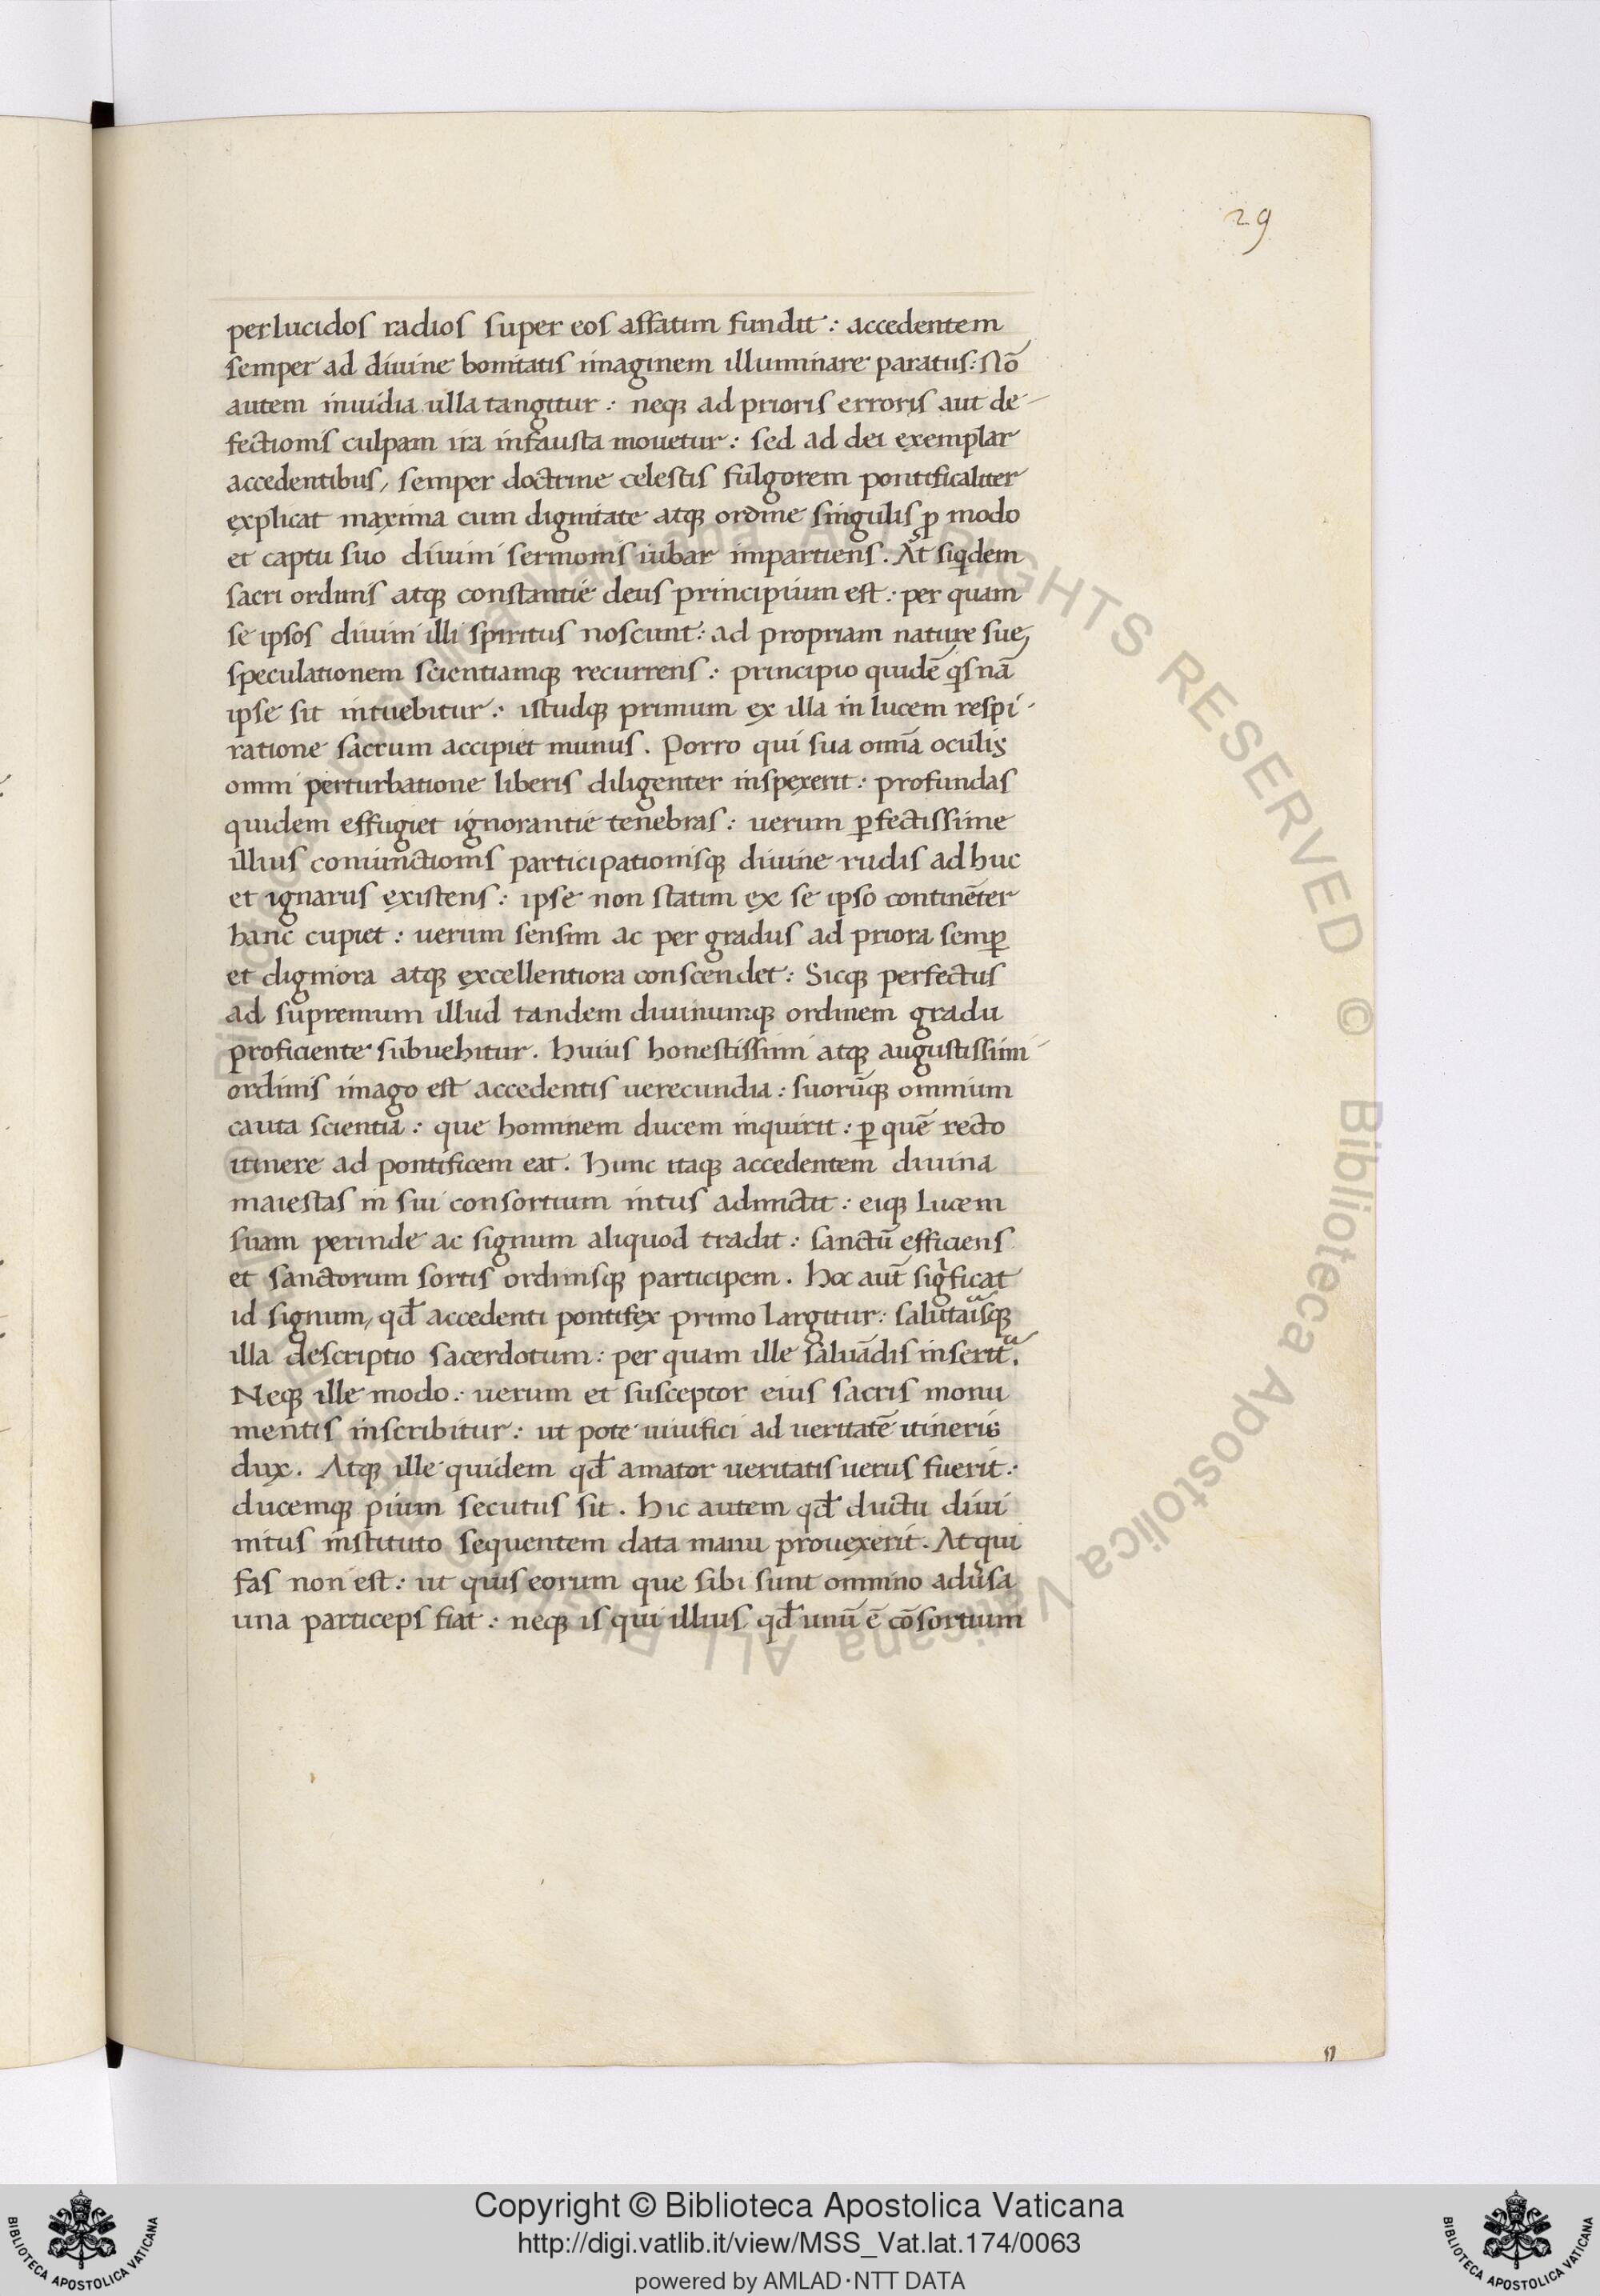 29
perlucidos radios super eos affatim fundit : accedentem
semper ad diuine bonitatis imaginem illuminare paratus : Nō
autem inuidia ulla tangitur : neqꝫ ad prioris erroris aut de-
fectionis culpam ira infausta mouetur : sed ad dei exemplar
accedentibus, semper doctrine celestis fulgorem pontificaliter
explicat maxima cum dignitate atqꝫ ordine singulis ꝓ modo
et captu suo diuini sermonis iubar impartiens. At siqdem
sacri ordinis atqꝫ constantie deus principium est : per quam
se ipsos diuini illi spiritus noscunt : ad propriam nature sue
speculationem scientiamqꝫ recurrens : principio quidē qsnā
ipse sit intuebitur : istudqꝫ primum ex illa in lucem respi-
ratione sacrum accipiet munus. Porro qui sua omīa oculis
omni perturbatione liberis diligenter inspexerit : profundas
quidem effugiet ignorantie tenebras : uerum ꝑfectissime
illius coniunctionis participationisqꝫ diuine rudis ad huc
et ignarus existens : ipse non statim ex se ipso continēter
hanc cupiet : uerum sensim ac per gradus ad priora semꝑ
et digniora atqꝫ excellentiora conscendet : Sicqꝫ perfectus
ad supremum illud tandem diuinumqꝫ ordinem gradu
proficiente subuehitur. Huius honestissimi atqꝫ augustissimi
ordinis imago est accedentis uerecundia : suorūqꝫ omnium
cauta scientia : que hominem ducem inquirit : ꝑ quē recto
itinere ad pontificem eat. Hunc itaqꝫ accedentem diuina
maiestas in sui consortium intus admictit : eiqꝫ lucem
suam perinde ac signum aliquod tradit : sanctū efficiens
et sanctorum sortis ordinisqꝫ participem. Hoc aut̄ sigficat
id signum, qđ accedenti pontifex primo largitur : salutaisqꝫ
illa descriptio sacerdotum : per quam ille saluādis inserit.
Neqꝫ ille modo : uerum et susceptor eius sacris monu
mentis inscribitur : ut pote uiuifici ad ueritatē itineris
dux. Atqꝫ ille quidem qđ amator ueritatis uerus fuerit :
ducemqꝫ pium secutus sit. Hic autem qđ ductu diui
nitus instituto sequentem data manu prouexerit. At qui
fas non est : ut quis eorum que sibi sunt omnino adu̓sa
una particeps fiat : neqꝫ is qui illius qđ unū ē cōsortium
© Biblioteca Apostolica Vaticana ALL RIGHTS RESERVED © Biblioteca Apostolica Vaticana ALL RIGHTS RESERVED
Copyright © Biblioteca Apostolica Vaticana
http://digi.vatlib.it/view/MSS_Vat.lat.174/0063
powered by AMLAD·NTT DATA
BIBLIOTECA APOSTOLICA VATICANA
BIBLIOTECA APOSTOLICA VATICANA